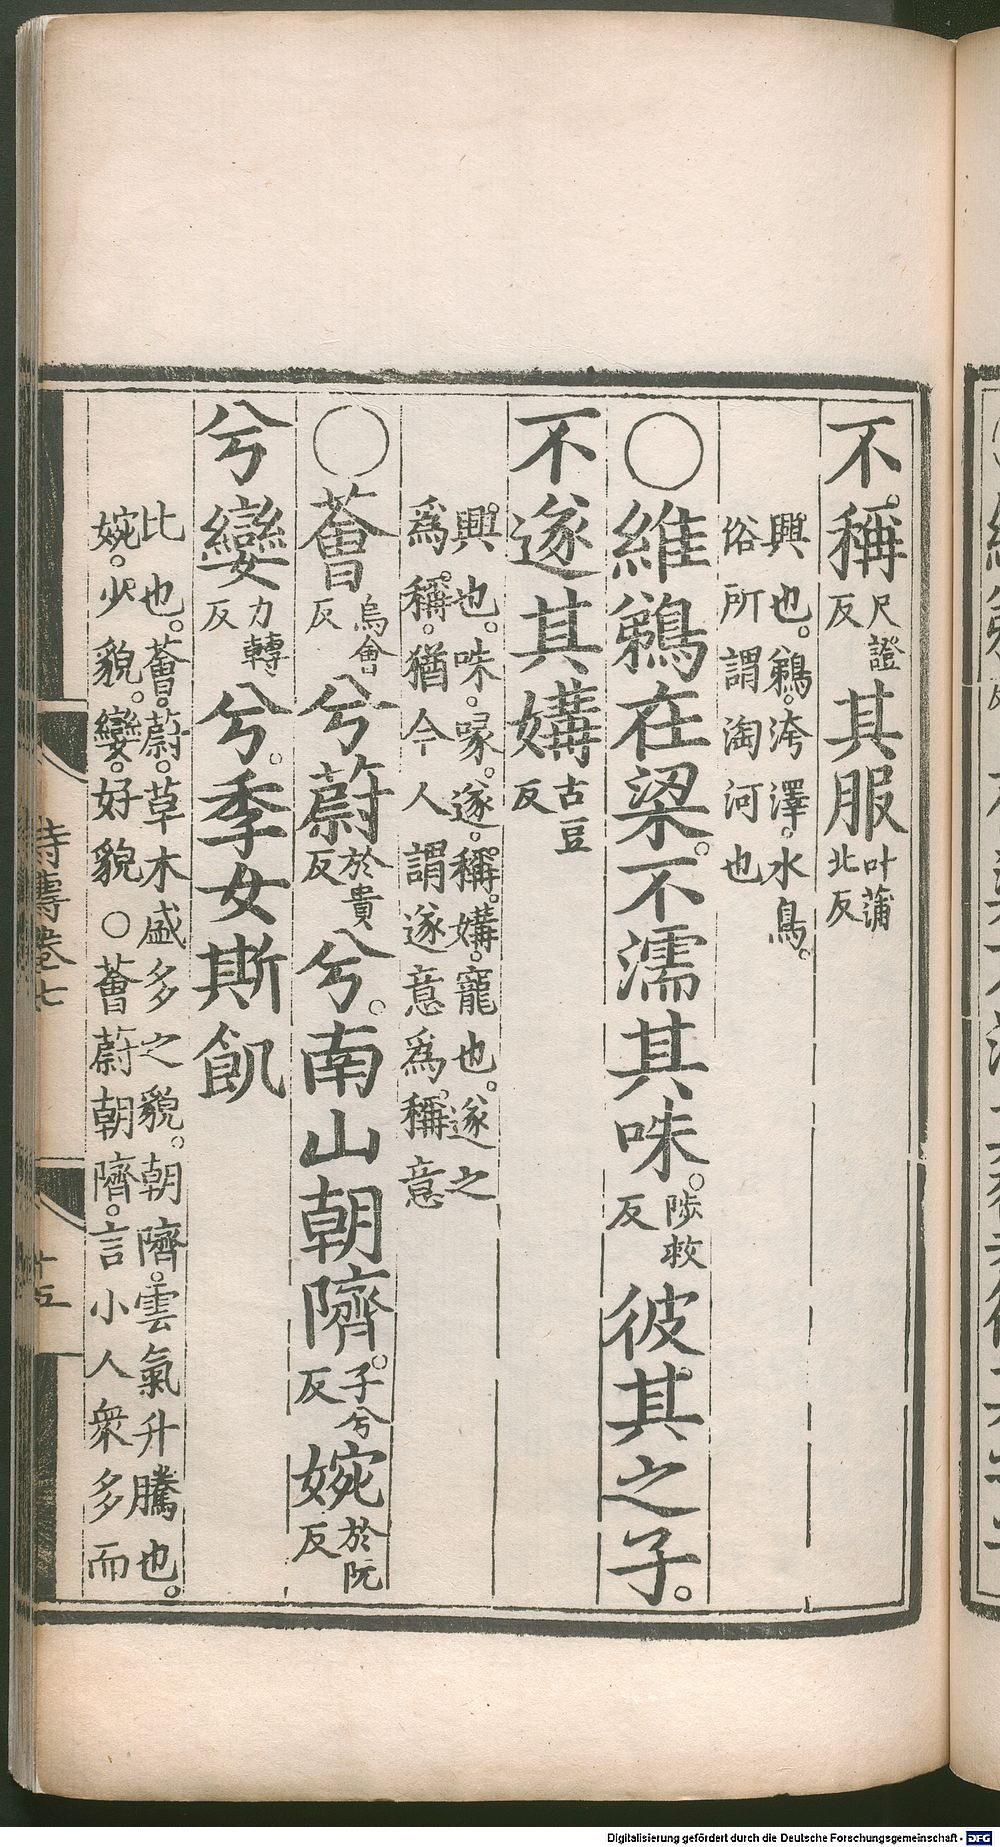 不稱尺證反其服叶蒲北反
興也。鵜。洿澤。水鳥。
俗所謂淘河也
○維鵜在梁。不濡其咮。陟救反彼其之子。
不遂其媾古豆反
興也。咮。喙。遂。稱。媾。寵也。遂之
爲稱。猶今人謂遂意爲稱意
○薈烏會反兮蔚於貴反兮。南山朝隮。子兮反婉於阮反
兮孌力轉反兮。季女斯飢
比也。薈。蔚。草木盛多之貌。朝隮。雲氣升騰也。
婉。少貌。孌。好貌○薈蔚朝隮。言小人衆多而
詩傳卷七
十五
Digitalisierung gefördert durch die Deutsche Forschungsgemeinschaft - DFG